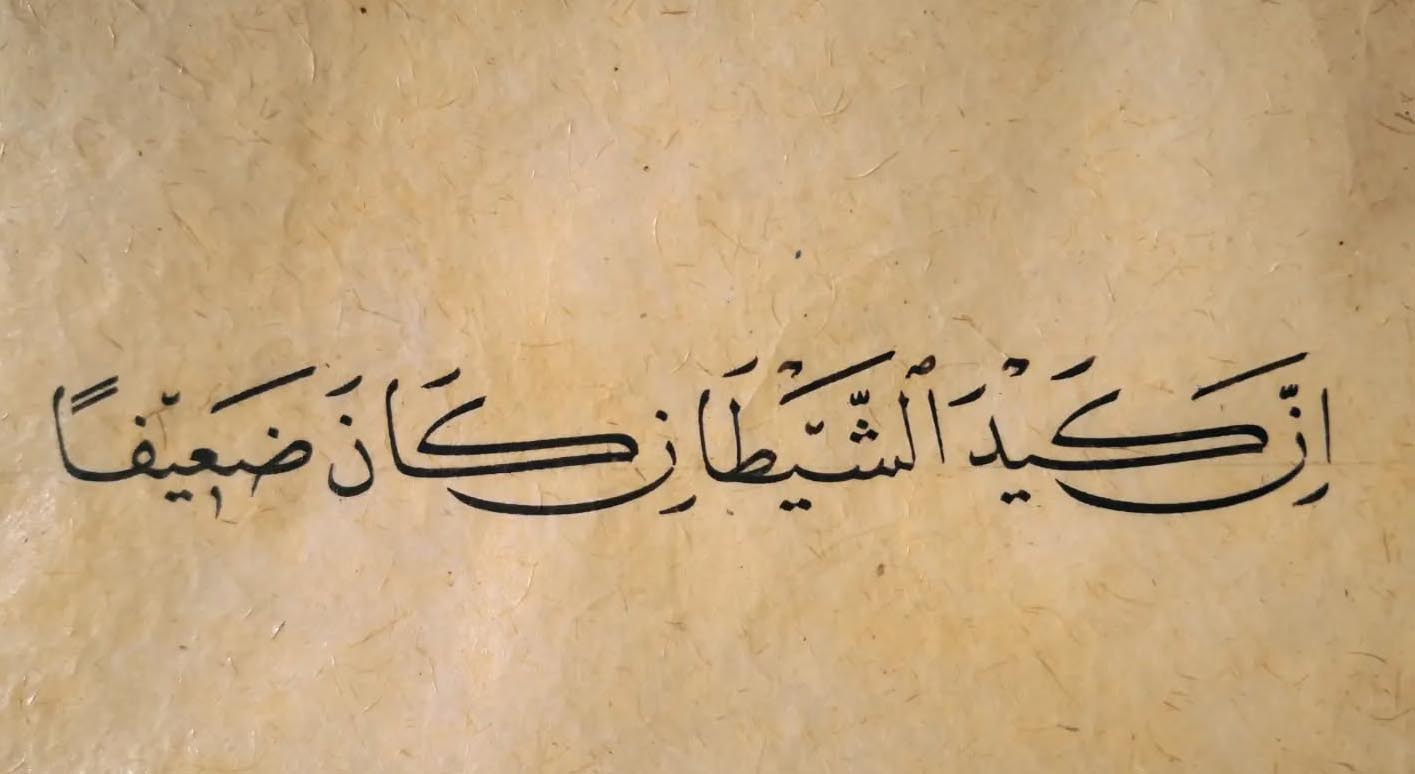 اِنَّ كَيْدَ ٱلشَّيْطَانِ كَانَ ضَعِيفًا